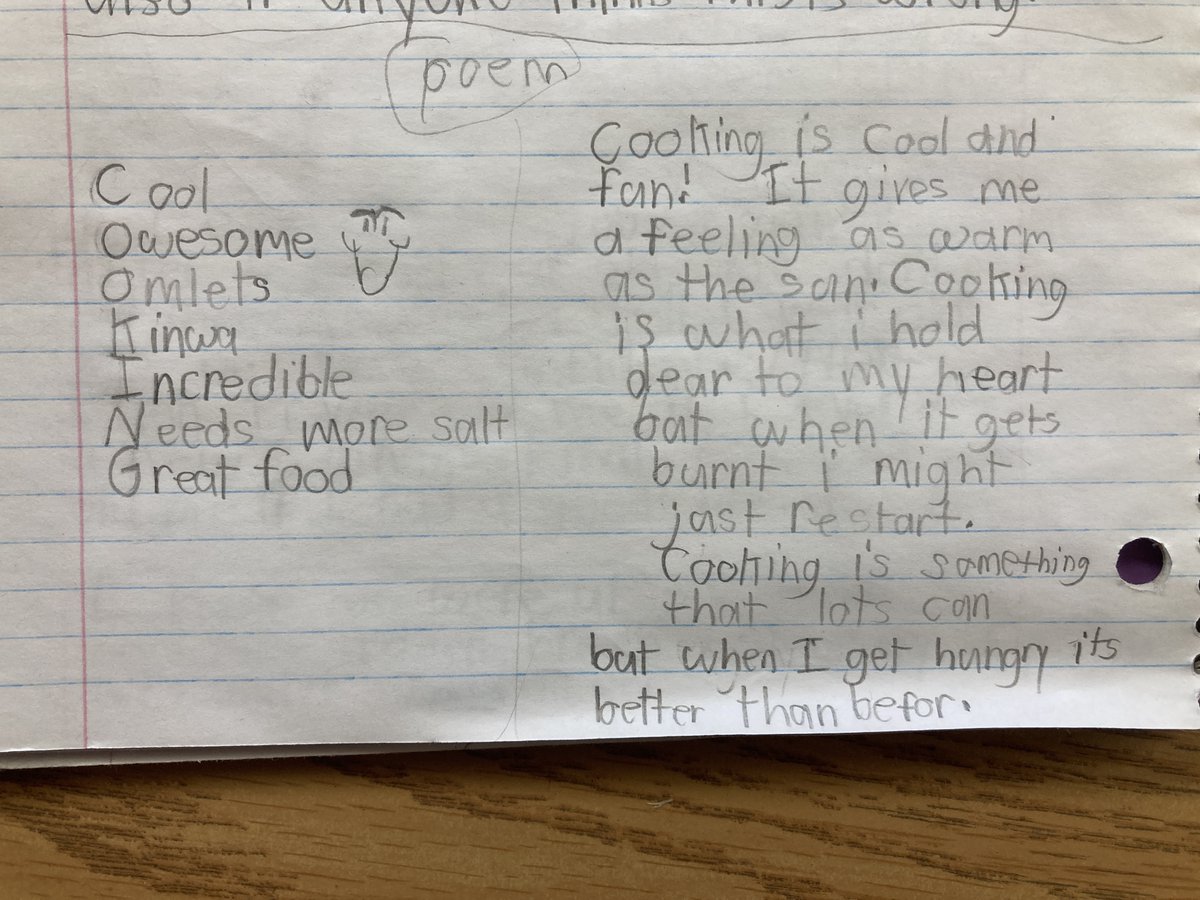 also if anyone thinks this is wrong.
poem
Cool
Owesome
Omlets
Kinwa
Incredible
Needs more salt
Great food
Cooking is cool and
fun! It gives me
a feeling as warm
as the sun. Cooking
is what i hold
dear to my heart
but when it gets
burnt i might
just restart.
Cooking is something
that lots can
but when I get hungry its
better than befor.